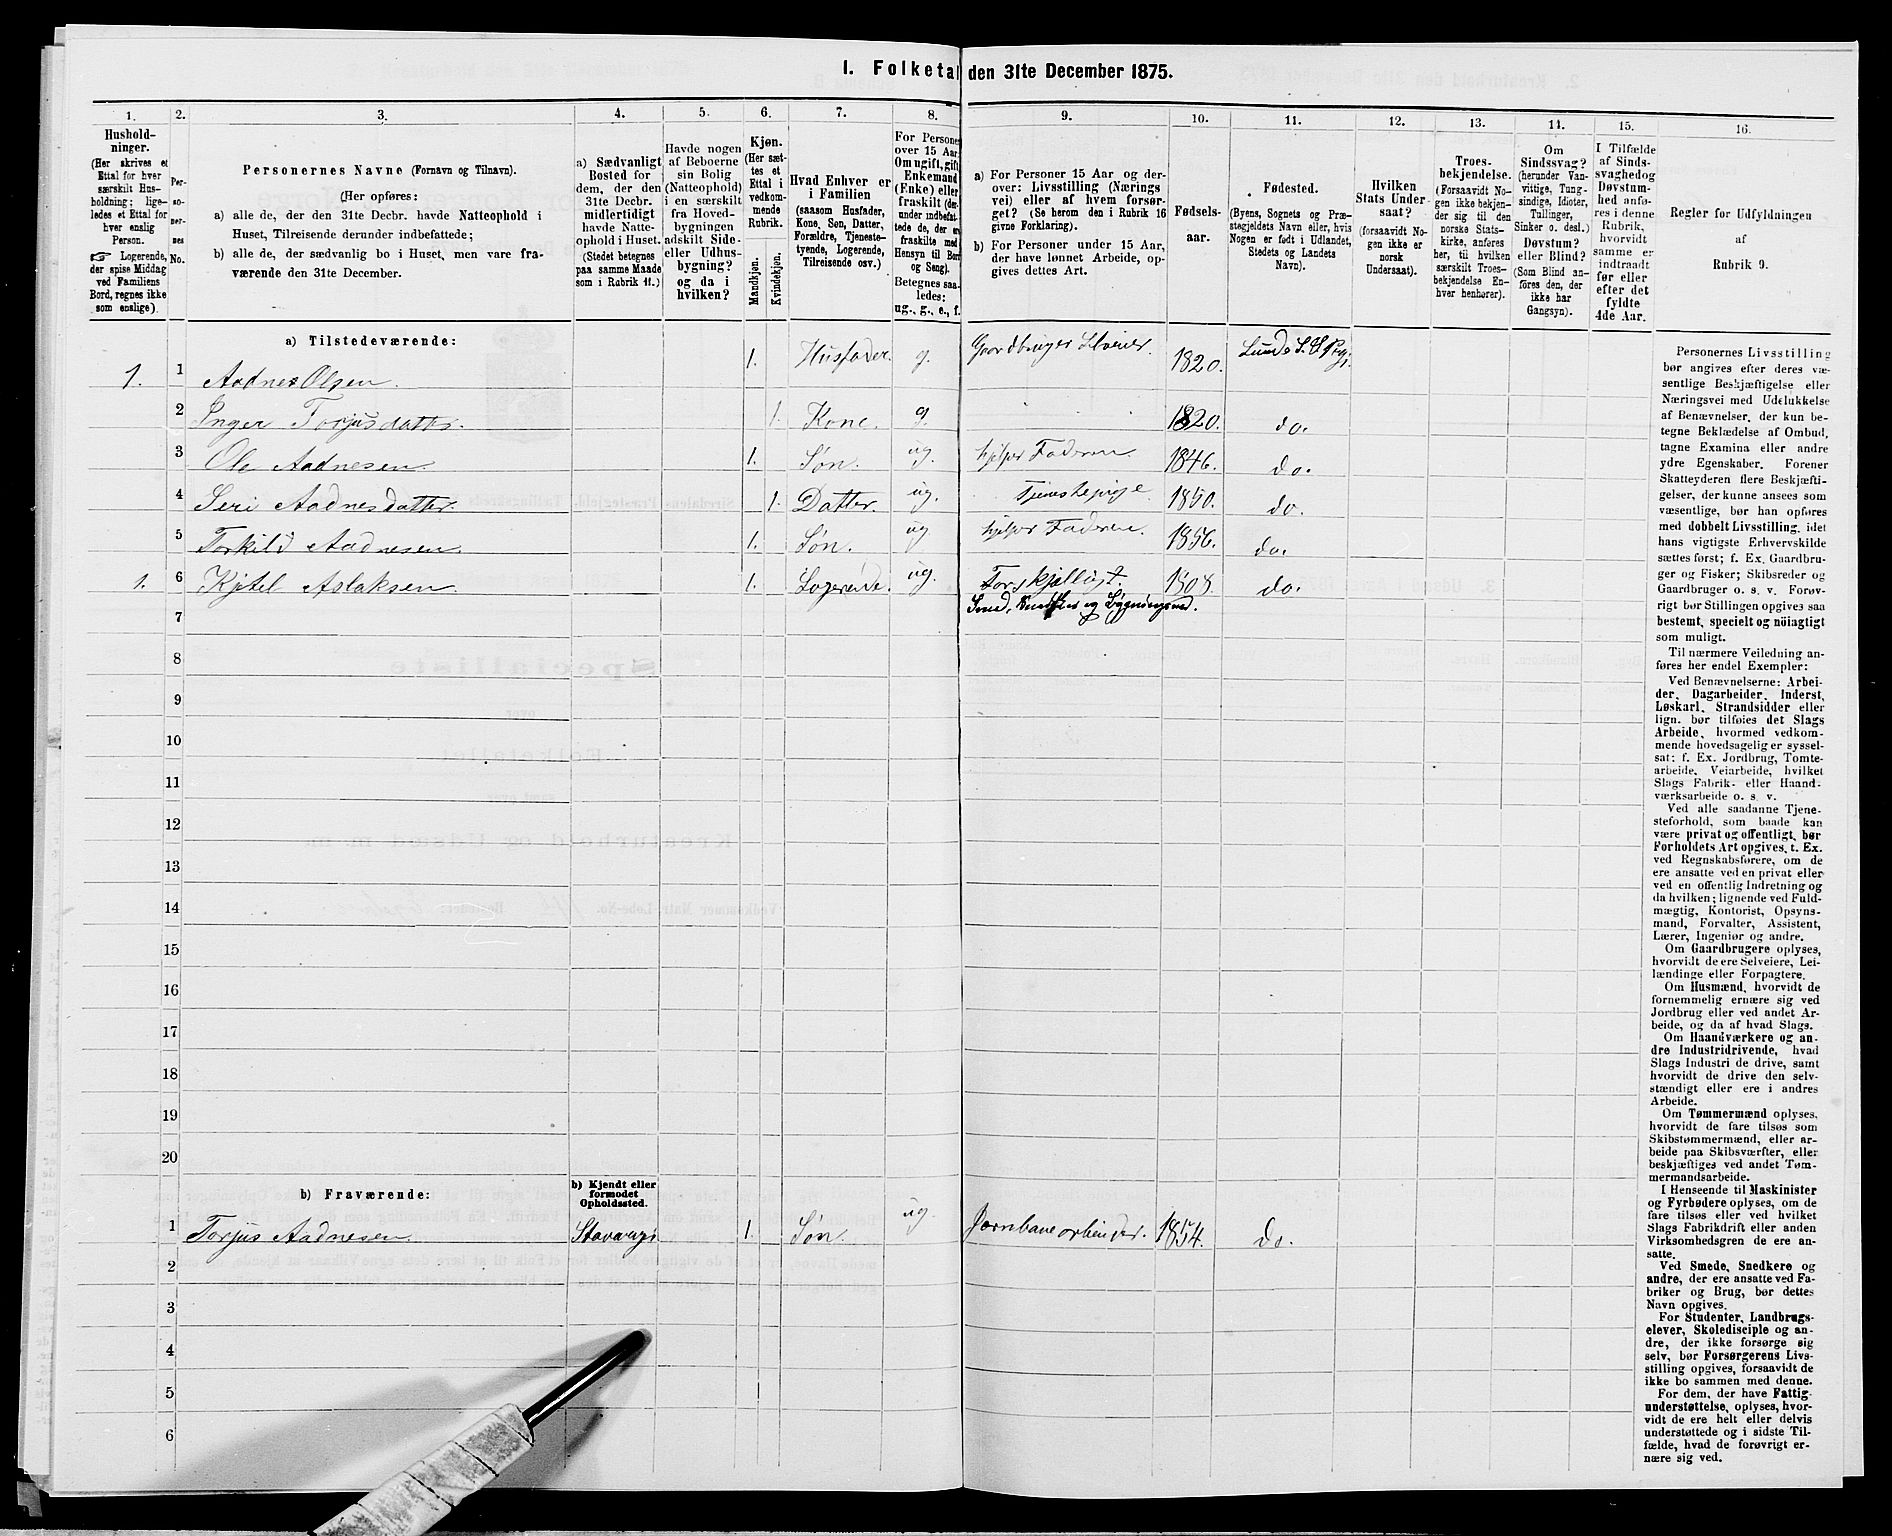 I. Folketal den 31te December 1875.
1.
Hushold-
ninger.
(Her skrives et
Ettal for hver
særskilt Hus-
holdning; lige-
ledes et Ettal for
hver enslig
Person.
☞ Logerende,
der spise Middag
ved Familiens
Bord, regnes ikke
som enslige).
2.
Per-
so-
ner-
nes
No.
3.
Personernes Navne (Fornavn og Tilnavn).
(Her opføres:
a) alle de, der den 31te Decbr. havde Natteophold i
Huset, Tilreisende derunder indbefattede;
b) alle de, der sædvanlig bo i Huset, men vare fra-
værende den 31te December.
4.
a) Sædvanligt
Bosted for
dem, der den
31te Decbr.
midlertidigt
havde Natte-
ophold i Huset.
(Stedet betegnes
paa samme Maade
som i Rubrik 11.)
5.
Havde nogen
af Beboerne
sin Bolig
(Natteophold)
i en særskilt
fra Hoved-
bygningen
adskilt Side-
eller Udhus-
bygning?
og da i
hvilken?
6.
Kjøn.
(Her sæt-
tes et
Ettal i
vedkom-
mende
Rubrik.
Mandkjøn.
Kvindekjøn.
7.
Hvad Enhver er
i Familien
(saasom Husfader,
Kone, Søn, Datter,
Forældre, Tjeneste-
tyende, Logerende,
Tilreisende osv.)
8.
For Persone
over 15 Aar
Om ugift, gift
Enkemand
(Enke) eller
fraskilt (der-
under indbefat-
tede de, der er
fraskilte med
Hensyn til Bord
og Seng).
Betegnes saa-
ledes:
ug., g., e., f.
9.
a) For Personer 15 Aar og der-
over: Livsstilling (Nærings
vei) eller af hvem forsør-
get? (Se herom den i Rubrik 16
givne Forklaring).
b) For Personer under 15 Aar,
der have lønnet Arbeide, op-
gives dettes Art.
10.
Fødsels-
aar.
11.
Fødested.
(Byens, Sognets og Præ-
stegjeldets Navn eller, hvis
Nogen er født i Udlandet,
Stedets og Landets
Navn).
12.
Hvilken
Stats Under
saat?
(forsaavidt No
gen ikke er
norsk
Undersaat).
13.
Troes-
bekjendelse.
(Forsaavidt No-
gen ikke bekjen-
der sig til den
norske Stats-
kirke, anføres
her, til hvilken
særskilt Troes-
bekjendelse En-
hver henhører).
14.
Om
Sindssvag?
(herunder Van-
vittige, Tung-
sindige, Idioter,
Tullinger,
Sinker o. desl.)
Døvstum?
eller Blind?
(Som Blind an-
føres den, der
ikke har
Gangsyn).
15.
I Tilfælde
af Sinds-
svaghedog
Døvstum-
hed anfø-
res i denne
Rubrik,
hvorvidt
samme er
indtraadt
før eller
efter det
fyldte
4de Aar.
16.
Regler for Udfyldningen
af
Rubrik 9.
a) Tilstedeværende:
1. 1 Aadnes Olsen. 1. Husfader g. Gaardbruger Selveier. 1820. Lunde S. Prgj.
2 Inger Torjusdatter. 1. Kone. g. 1820. do.
3 Ole Aadnesen. 1. Søn. ug. hjelper Faderen. 1846. do.
4 Seri Aadnesdatter. 1. Datter. ug. Tjenestepige. 1850. do.
5 Torkild Aadnesen. 1. Søn. ug. hjelper Faderen. 1856. do.
1. 6 Kjetel Aslaksen 1. Logerende. ug. Forskjelligt. 1808. do.
7 Smed, Snedker og Bygningsmd.
8
9
10
11
12
13
14
15
16
17
18
19
20
b) Fraværende:
b) Kjendt eller
formodet
Opholdssted.
1 Torjus Aadnesen. Stavanger 1. Søn. ug. Jernbanearbeider. 1854. do.
2
3
4
5
6
Personernes Livsstilling
bør angives efter deres væ-
sentlige Beskjæftigelse eller
Næringsvei med Udelukkelse
af Benævnelser, der kun be-
tegne Beklædelse af Ombud,
tagne Examina eller andre
ydre Egenskaber. Forener
Skatteyderen flere Beskjæfti-
gelser, der kunne ansees som
væsentlige, bør han opføres
med dobbelt Livsstilling, idet
hans vigtigste Erhvervskilde
sættes først; f. Ex. Gaardbru-
ger og Fisker; Skibsreder og
Gaardbruger o. s. v. Forøv-
rigt bør Stillingen opgives saa
bestemt, specielt og nöiagtigt
som muligt.
Til nærmere Veiledning an-
føres her endel Exempler:
Ved Benævnelserne: Arbei-
der, Dagarbeider, Inderst,
Løskarl, Strandsidder eller
lign. bør tilføies det Slags
Arbeide, hvormed vedkom-
mende hovedsagelig er syssel-
sat: f. Ex. Jordbrug, Tomte-
arbeide, Veiarbeide, hvilket
Slags Fabrik- eller Haand-
værksarbeide o. s. v.
Ved alle saadanne Tjene-
steforhold, som baade kan
være privat og offentligt, bør
Forholdets Art opgives, t. Ex.
ved Regnskabsførere, om de
ere ansatte ved en privat eller
ved en offentlig Indretning og
da hvilken; lignende ved Fuld-
mægtig, Kontorist, Opsyns-
mand, Forvalter, Assistent,
Lærer, Ingeniør og andre.
Om Gaardbrugere oplyses,
hvorvidt de ere Selveiere, Lei-
lændinge eller Forpagtere.
Om Husmænd, hvorvidt de
fornemmelig ernære sig ved
Jordbrug eller ved andet Ar-
beide, og da af hvad Slags.
Om Haandværkere og an-
dre Industridrivende, hvad
Slags Industri de drive, samt
hvorvidt de drive den selv-
stændigt eller ere i andres
Arbeide.
Om Tømmermænd oplyses,
hvorvidt de fare tilsøs som
Skibstømmermænd, eller ar-
beide paa Skibsværfter, eller
beskjæftiges ved andet Tøm-
mermandsarbeide.
I Henseende til Maskinister
og Fyrbødere oplyses, om de
fare tilsøs eller ved hvilket
Slags Fabrikdrift eller anden
Virksomhedsgren de ere an-
satte.
Ved Smede, Snedkere og
andre, der ere ansatte ved Fa-
briker og Brug, bør dettes
Navn opgives.
For Studenter, Landbrugs-
elever, Skoledisciple og an-
dre, der ikke forsørge sig
selv, bør Forsørgerens Livs-
stilling opgives, forsaavidt de
ikke bo sammen med denne.
For dem, der have Fattig-
understøttelse, oplyses, hvor-
vidt de ere helt eller delvis
understøttede og i sidste Til-
fælde, hvad de forøvrigt er-
nære sig ved.